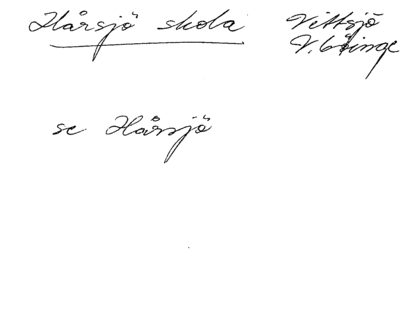 Hårsjö skola Vittsjö
V. Göinge
se Hårsjö